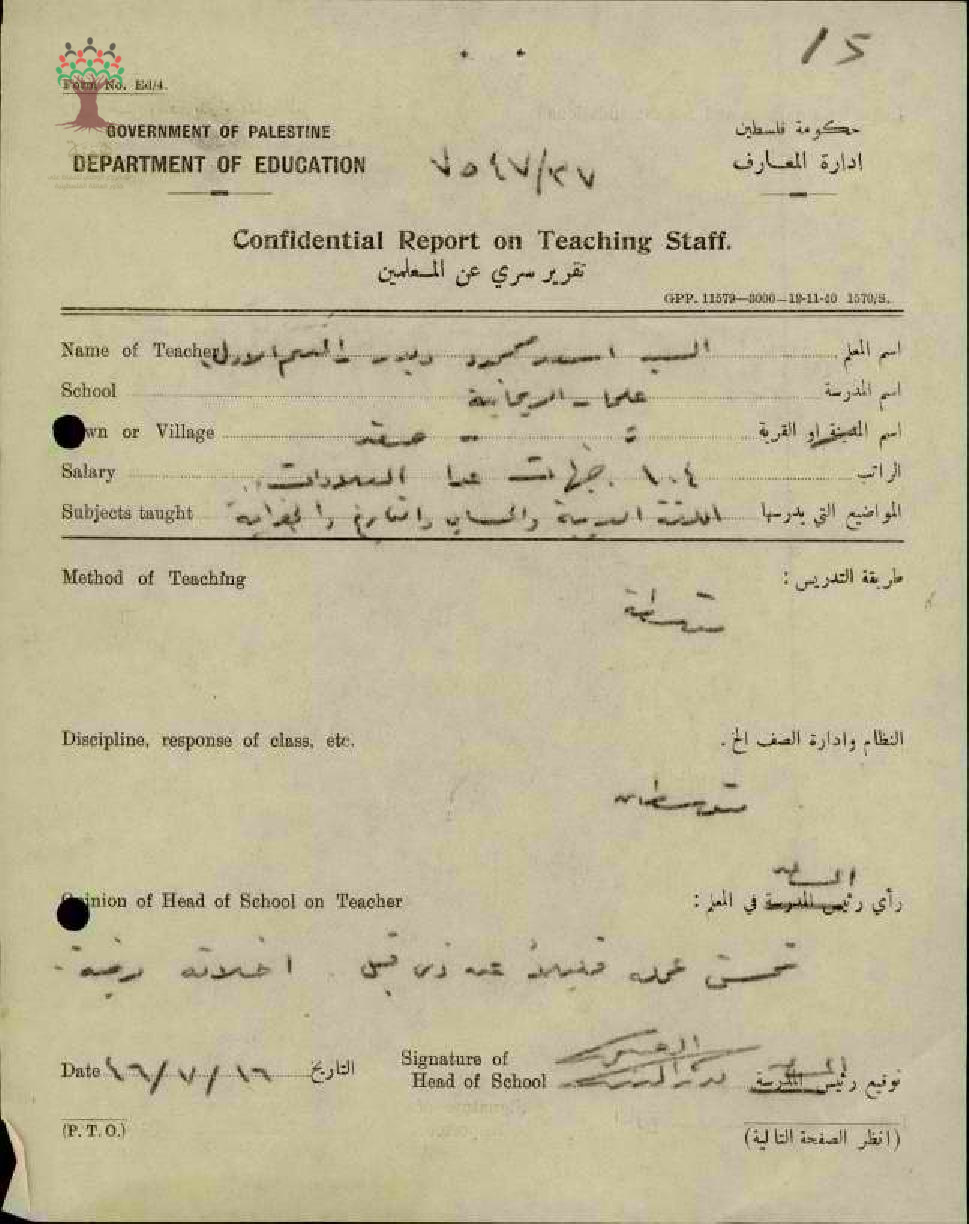 15
Form No. Ed/4.
GOVERNMENT OF PALESTINE
DEPARTMENT OF EDUCATION
حكومة فلسطين
ادارة المعارف
Confidential Report on Teaching Staff.
تقرير سري عن المعلمين
GPP. 11579—3000—19-11-40 1570/S.
Name of Teacher السيد اسعد محمود اسم المعلم
School علما - الريحانية اسم المدرسة
Town or Village صفد اسم المدينة او القرية
Salary جنيهات عدا العلاوات الراتب
Subjects taught اللغة العربية والحساب والتاريخ والجغرافية المواضيع التي يدرسها
Method of Teaching طريقة التدريس :
متوسطة
Discipline, response of class, etc. النظام وادارة الصف الخ .
متوسطان
Opinion of Head of School on Teacher رأي رئيس المدرسة في المعلم :
تحسن عمله قليلاً عن ذي قبل . اخلاقه رضية .
Date التاريخ
Signature of
Head of School توقيع رئيس المدرسة
(P. T. O.) (انظر الصفحة التالية)